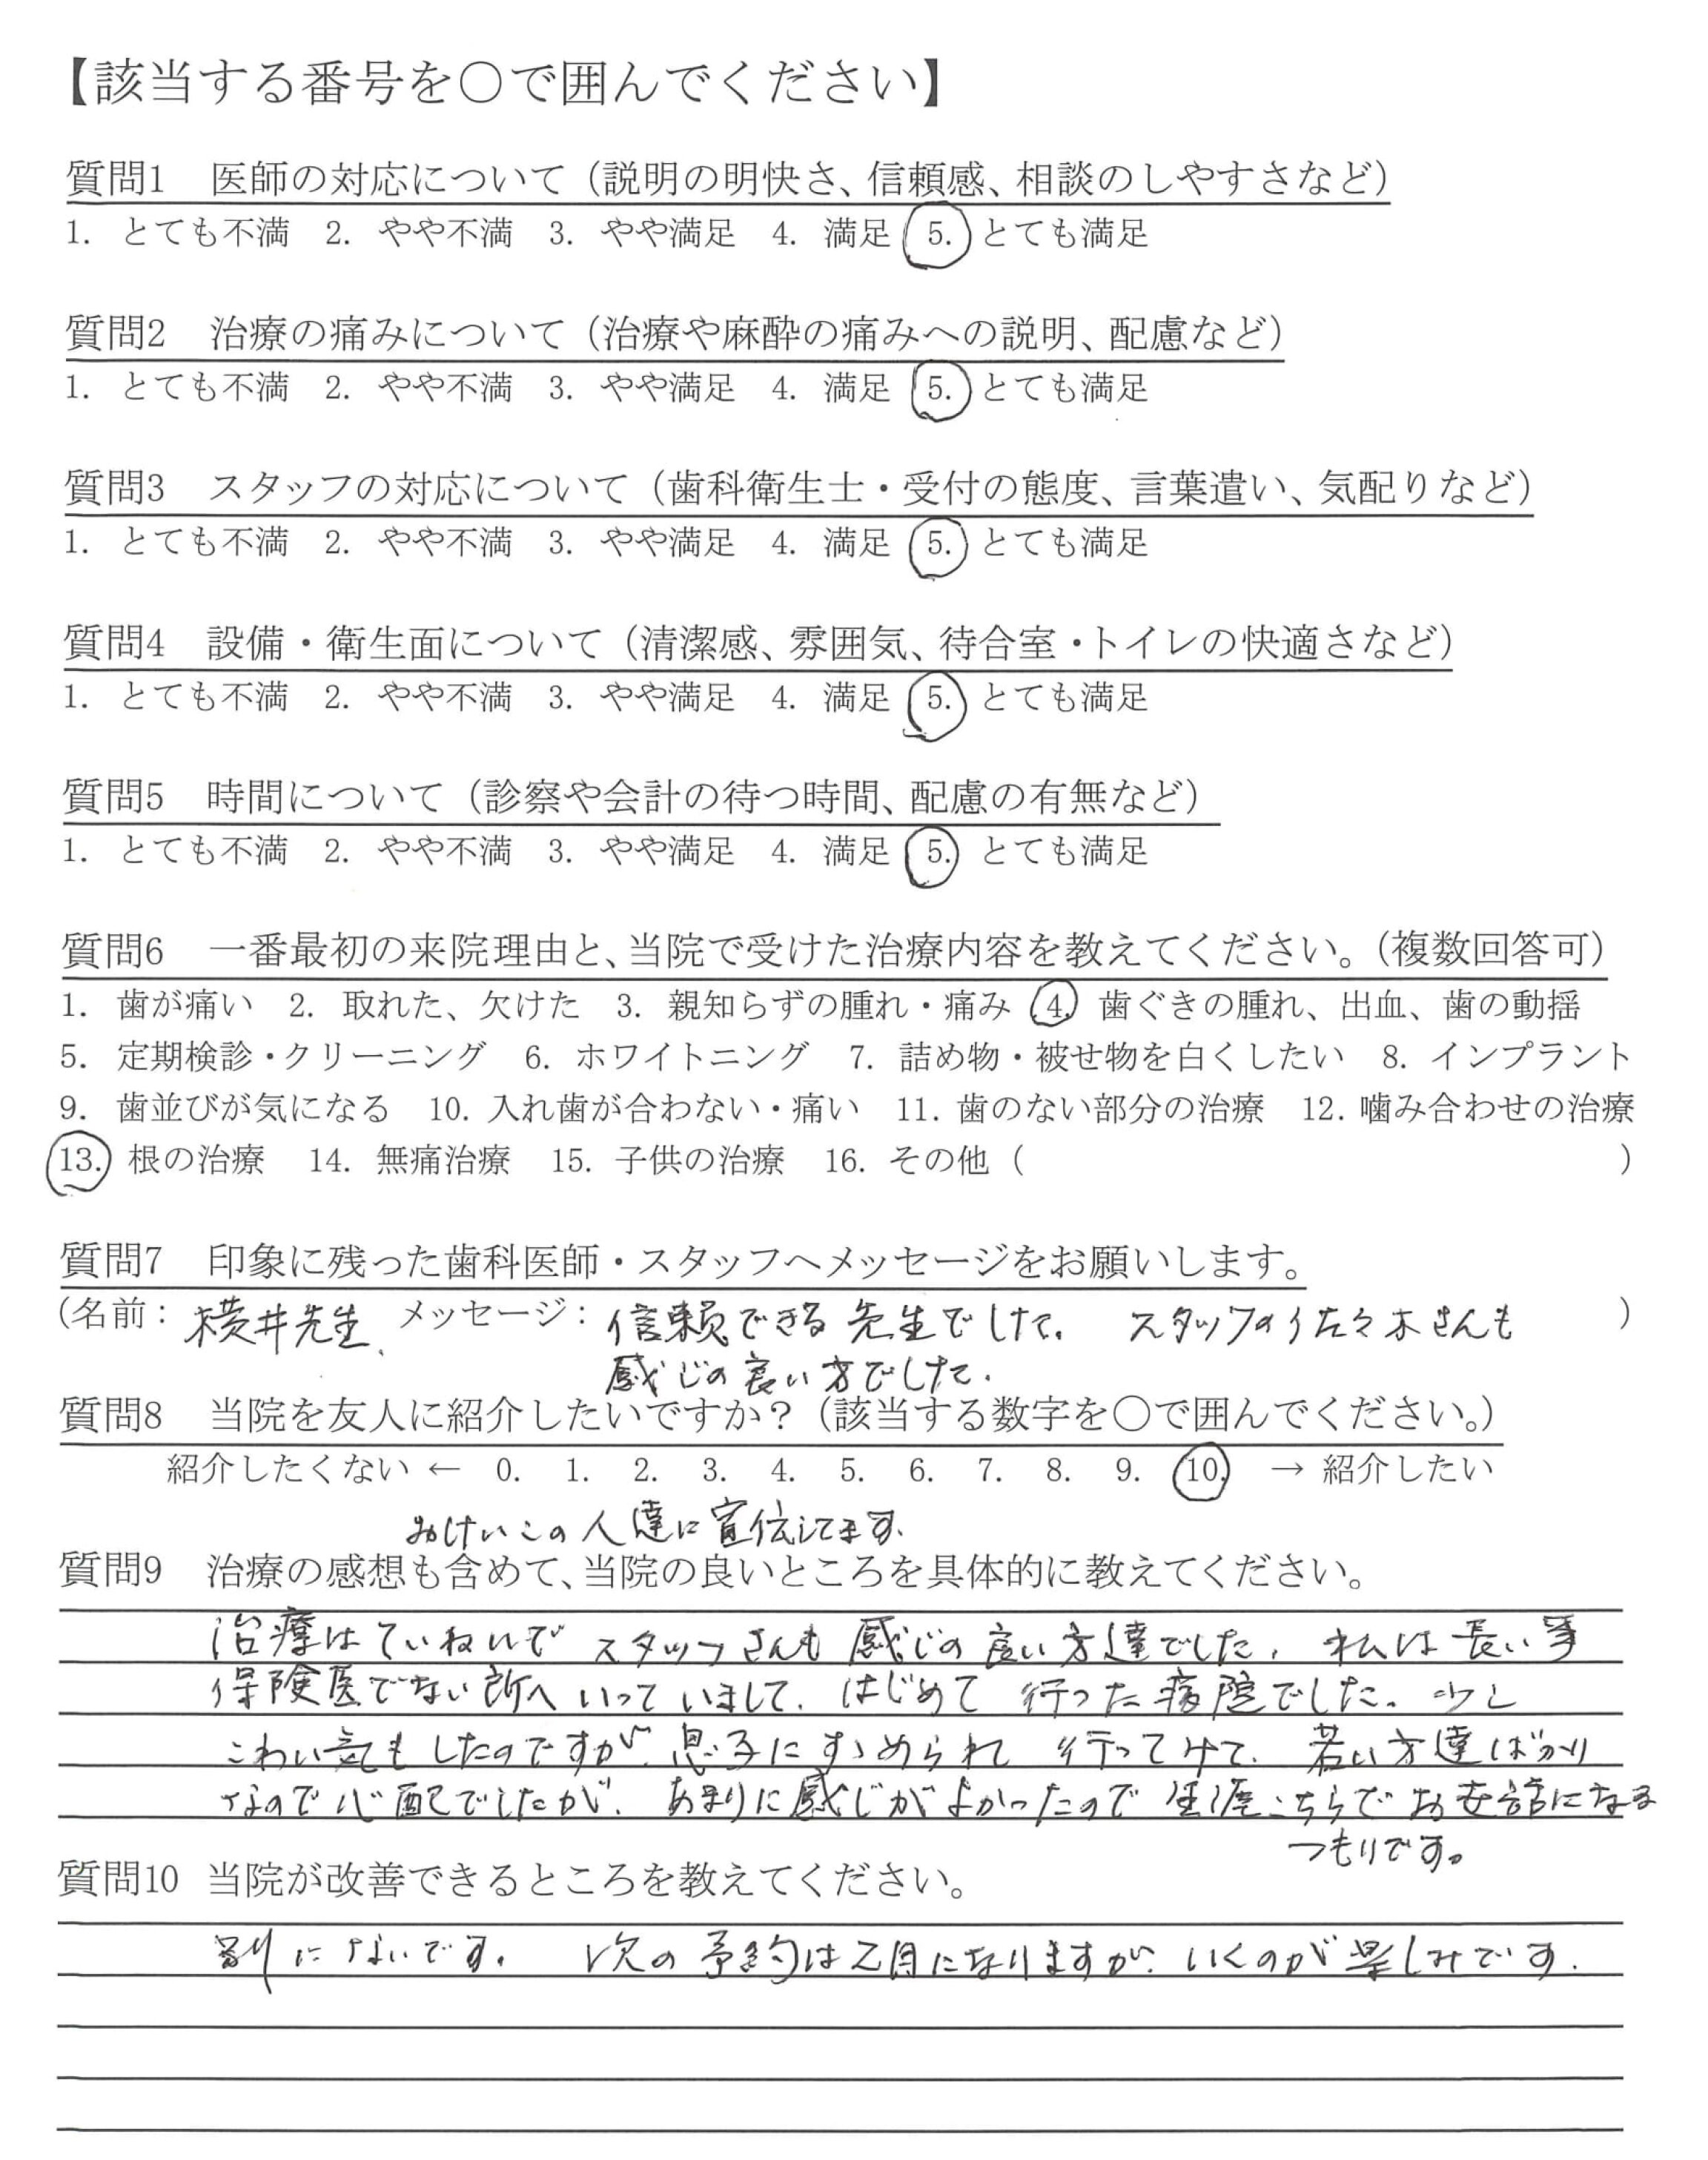 【該当する番号を○で囲んでください】
質問1 医師の対応について（説明の明快さ、信頼感、相談のしやすさなど）
1. とても不満 2. やや不満 3. やや満足 4. 満足 5. とても満足
質問2 治療の痛みについて（治療や麻酔の痛みへの説明、配慮など）
1. とても不満 2. やや不満 3. やや満足 4. 満足 5. とても満足
質問3 スタッフの対応について（歯科衛生士・受付の態度、言葉遣い、気配りなど）
1. とても不満 2. やや不満 3. やや満足 4. 満足 5. とても満足
質問4 設備・衛生面について（清潔感、雰囲気、待合室・トイレの快適さなど）
1. とても不満 2. やや不満 3. やや満足 4. 満足 5. とても満足
質問5 時間について（診察や会計の待つ時間、配慮の有無など）
1. とても不満 2. やや不満 3. やや満足 4. 満足 5. とても満足
質問6 一番最初の来院理由と、当院で受けた治療内容を教えてください。（複数回答可）
1. 歯が痛い 2. 取れた、欠けた 3. 親知らずの腫れ・痛み 4. 歯ぐきの腫れ、出血、歯の動揺
5. 定期検診・クリーニング 6. ホワイトニング 7. 詰め物・被せ物を白くしたい 8. インプラント
9. 歯並びが気になる 10. 入れ歯が合わない・痛い 11. 歯のない部分の治療 12. 噛み合わせの治療
13. 根の治療 14. 無痛治療 15. 子供の治療 16. その他（ ）
質問7 印象に残った歯科医師・スタッフへメッセージをお願いします。
（名前：横井先生、メッセージ：信頼できる先生でした。スタッフの佐々木さんも ）
感じの良い方でした。
質問8 当院を友人に紹介したいですか？（該当する数字を○で囲んでください。）
紹介したくない ← 0. 1. 2. 3. 4. 5. 6. 7. 8. 9. 10. → 紹介したい
おけいこの人達に宣伝してます。
質問9 治療の感想も含めて、当院の良いところを具体的に教えてください。
治療はていねいで スタッフさんも感じの良い方達でした。私は長い事
保険医でない所へいっていまして、はじめて行った病院でした。少し
こわい気もしたのですが、息子にすゝめられ 行ってみて、若い方達ばかり
なので心配でしたが、あまりに感じがよかったので生涯こちらでお世話になる
つもりです。
質問10 当院が改善できるところを教えてください。
別にないです。 次の予約は2月になりますが、いくのが楽しみです。